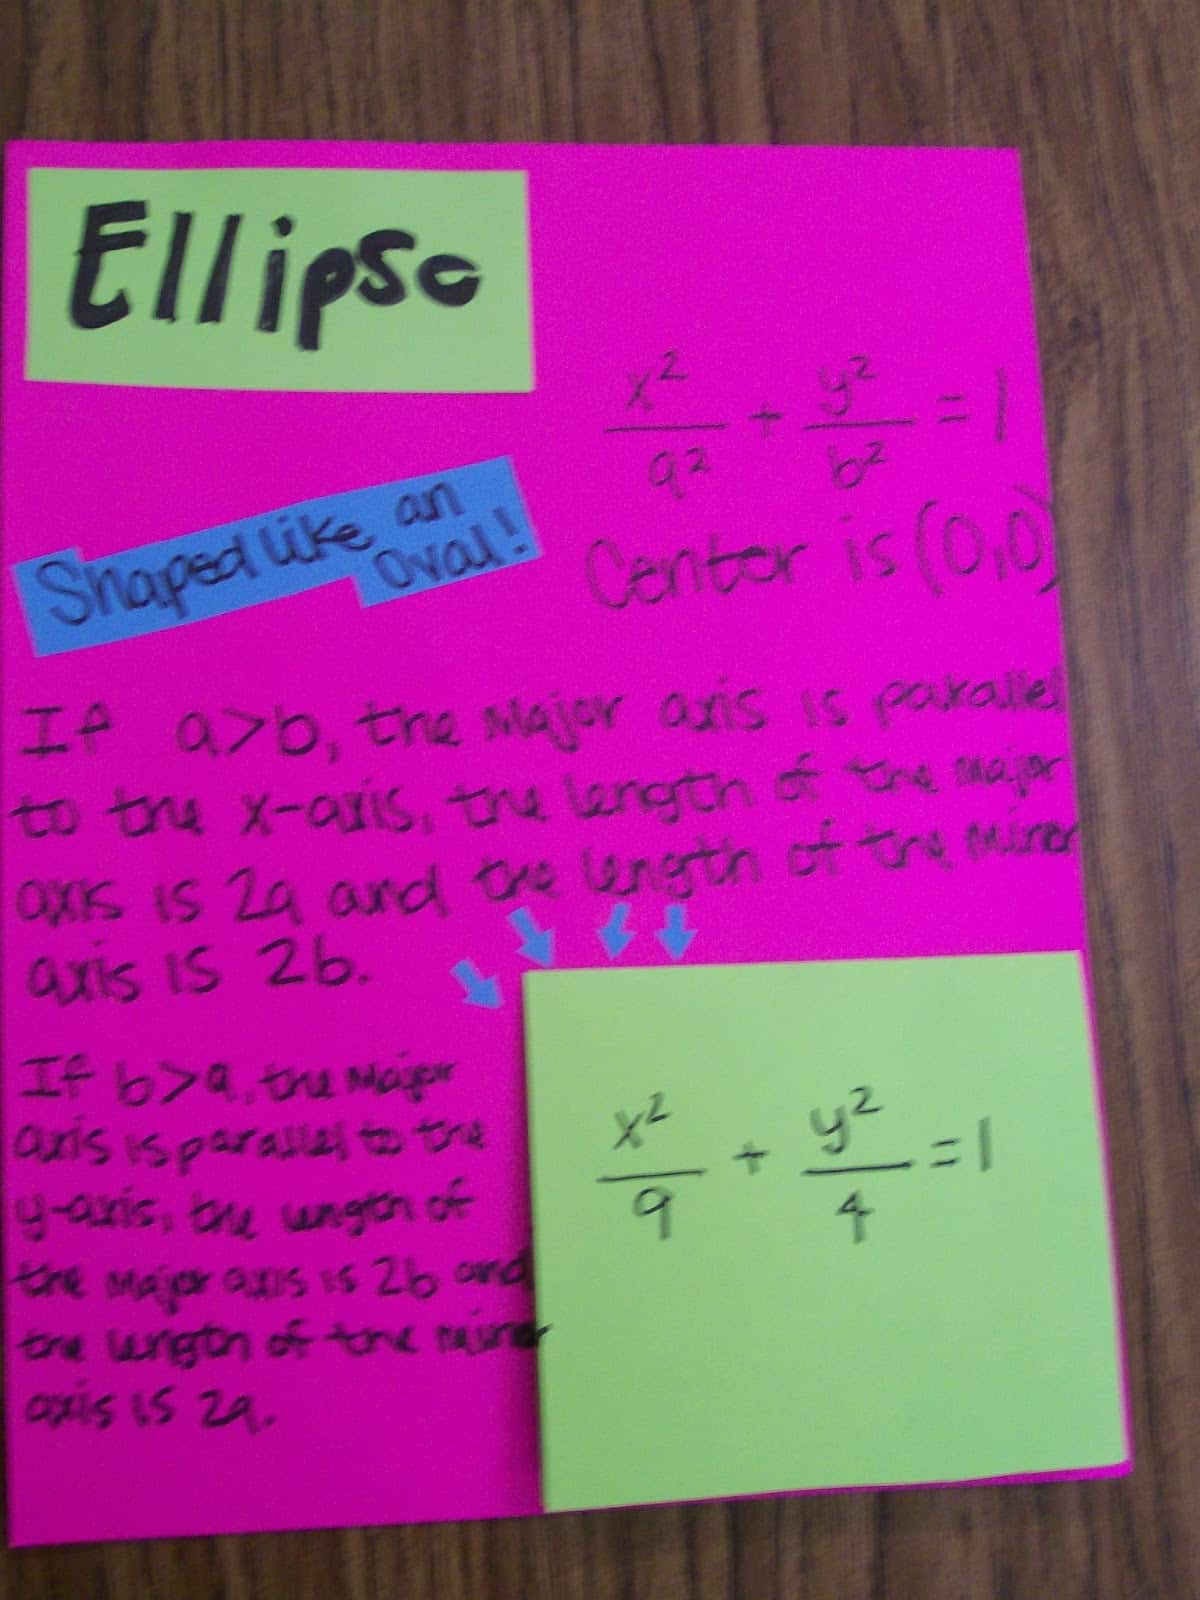 Ellipse
x²/a² + y²/b² = 1
Shaped like an
oval!
Center is (0,0)
If a>b, the Major axis is parallel
to the x-axis, the length of the major
axis is 2a and the length of the minor
axis is 2b.
If b>a, the Major
axis is parallel to the
y-axis, the length of
the Major axis is 2b and
the length of the minor
axis is 2a.
x²/9 + y²/4 = 1